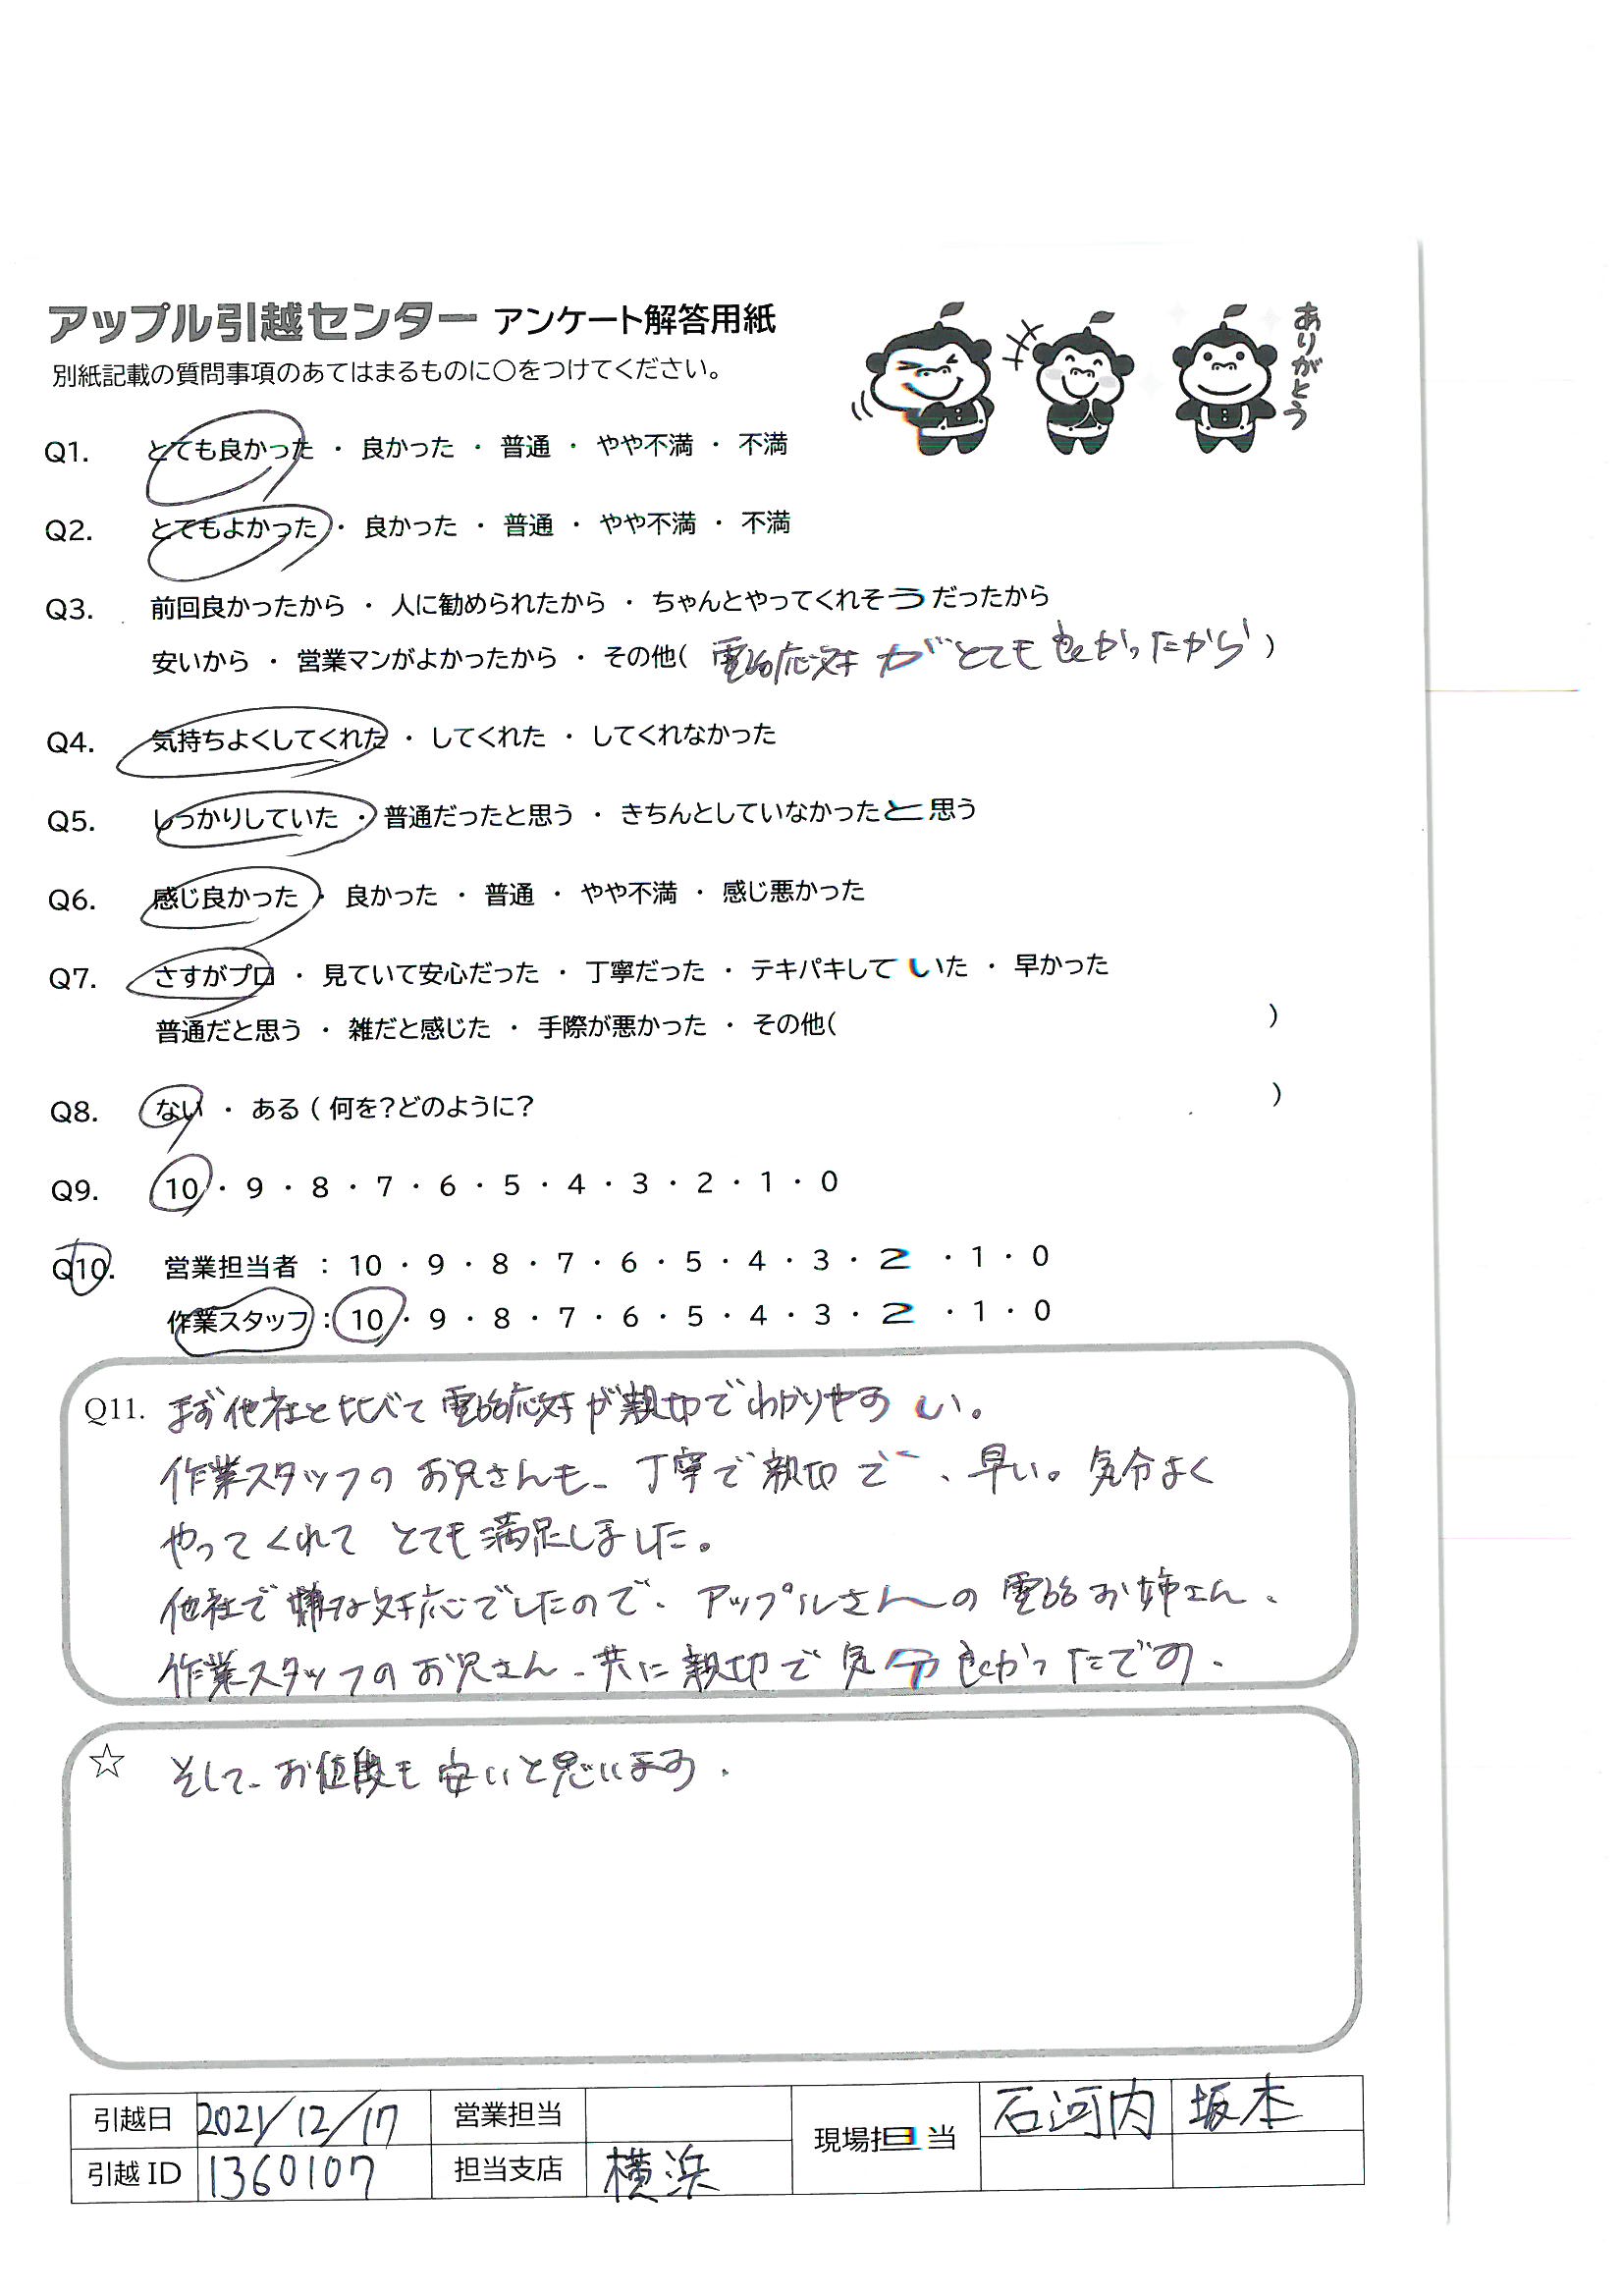 アップル引越センター アンケート解答用紙
ありがとう
別紙記載の質問事項のあてはまるものに○をつけてください。
Q1. とても良かった ・ 良かった ・ 普通 ・ やや不満 ・ 不満
Q2. とてもよかった ・ 良かった ・ 普通 ・ やや不満 ・ 不満
Q3. 前回良かったから ・ 人に勧められたから ・ ちゃんとやってくれそうだったから
安いから ・ 営業マンがよかったから ・ その他( 電話応対がとても良かったから )
Q4. 気持ちよくしてくれた ・ してくれた ・ してくれなかった
Q5. しっかりしていた ・ 普通だったと思う ・ きちんとしていなかったと思う
Q6. 感じ良かった ・ 良かった ・ 普通 ・ やや不満 ・ 感じ悪かった
Q7. さすがプロ ・ 見ていて安心だった ・ 丁寧だった ・ テキパキしていた ・ 早かった
普通だと思う ・ 雑だと感じた ・ 手際が悪かった ・ その他( )
Q8. ない ・ ある ( 何を?どのように? )
Q9. 10 ・ 9 ・ 8 ・ 7 ・ 6 ・ 5 ・ 4 ・ 3 ・ 2 ・ 1 ・ 0
Q10. 営業担当者 : 10 ・ 9 ・ 8 ・ 7 ・ 6 ・ 5 ・ 4 ・ 3 ・ 2 ・ 1 ・ 0
作業スタッフ : 10 ・ 9 ・ 8 ・ 7 ・ 6 ・ 5 ・ 4 ・ 3 ・ 2 ・ 1 ・ 0
Q11. まず他社と比べて電話応対が親切でわかりやすい。
作業スタッフのお兄さんも、丁寧で親切で、早い。気分よく
やってくれて とても満足しました。
他社で嫌な対応でしたので、アップルさんの電話お姉さん、
作業スタッフのお兄さん、共に親切で気分良かったです。
☆ そして、お値段も安いと思います。
引越日 2021/12/17 営業担当 現場担当 石河内 坂本
引越ID 1360107 担当支店 横浜